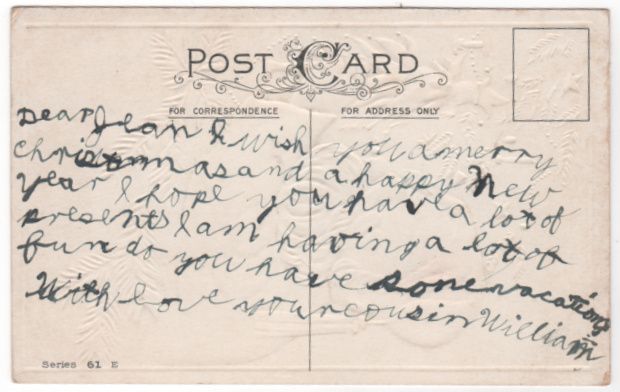 POST CARD
FOR CORRESPONDENCE
FOR ADDRESS ONLY
Dear Jean I wish you a merry
christmas and a happy New
year I hope you have a lot of
presents I am having a lot of
fun do you have some vacation
With love your cousin William
Series 61 E